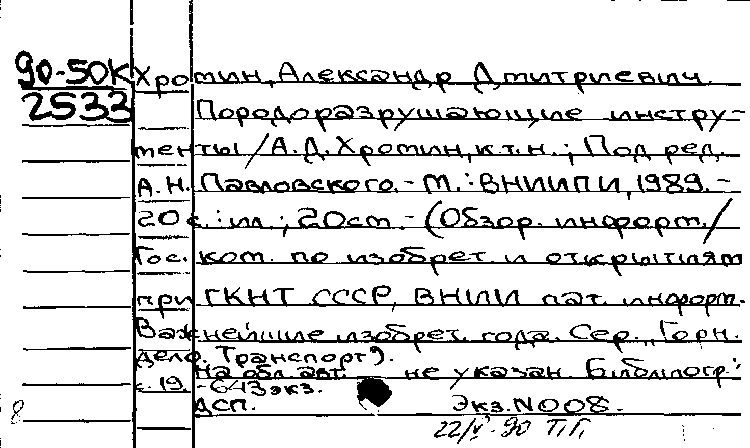 90-50К Хромин, Александр Дмитриевич.
2533 Породоразрушающие инстру-
менты / А.Д. Хромин, к.т.н.; Под ред.
А.Н. Павловского. - М.: ВНИИПИ, 1989. -
20 с.: ил.; 20 см. - (Обзор. информ. /
Гос. ком. по изобрет. и открытиям
при ГКНТ СССР, ВНИИ пат. информ.
Важнейшие изобрет. года. Сер. "Горн.
дело. Транспорт").
На обл. авт. не указан. Бібліогр:
с. 19. - 643 экз.
ДСП. Экз. N 008.
22/V-90 Т.Г.
8